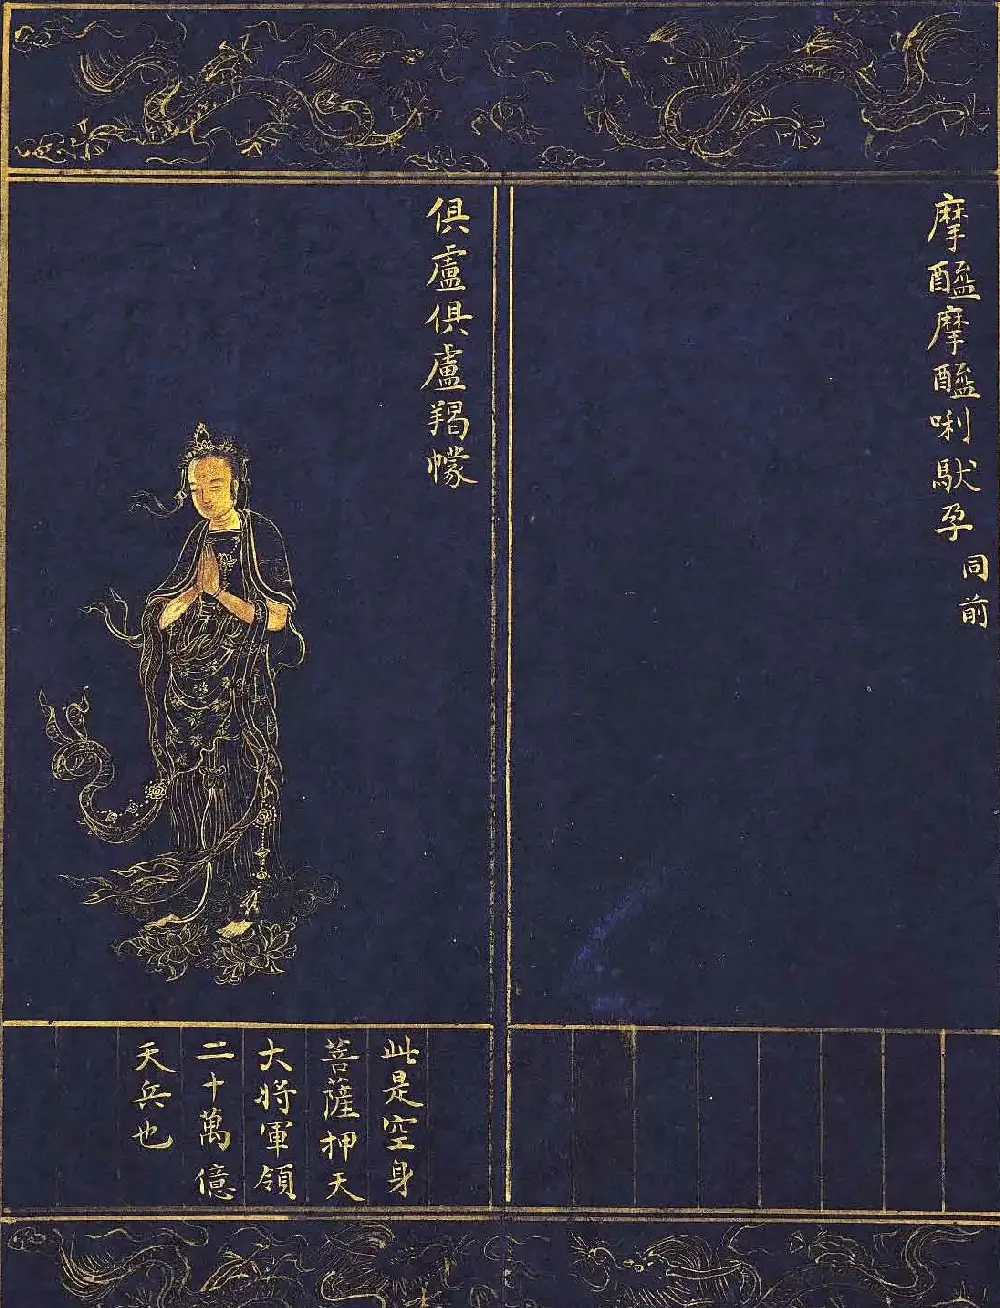 摩醯摩醯唎馱孕 同前
俱盧俱盧羯懞
此是空身
菩薩押天
大將軍領
二十萬億
天兵也